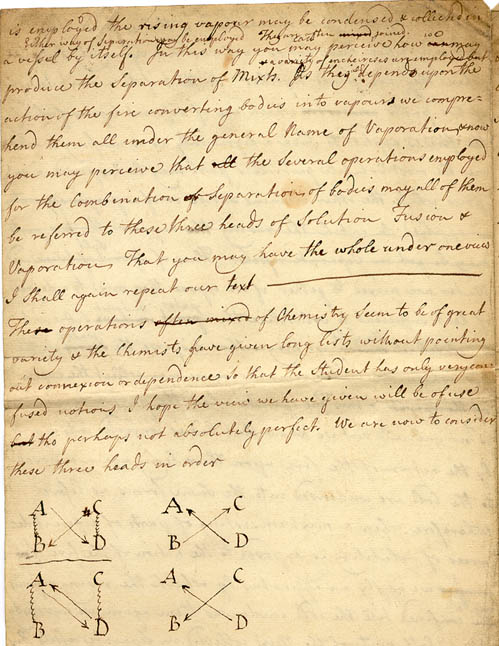 is employed the rising vapour may be condensed & collected in
Either way of Separation may be employed They are often mixed joined.
a vessel by itself. In this way you may perceive how we may
a variety of encheireses are employed but
produce the Separation of Mixts. As they depend upon the
action of the fire converting bodies into vapours we compre-
hend them all under the general Name of Vaporation & now
you may perceive that all the Several operations employed
for the Combination or Separation of bodies may all of them
be referred to these three heads of Solution Fusion &
Vaporation. That you may have the whole under one view
I Shall again repeat our text
These operations often mixed of Chemistry Seem to be of great
variety & the Chemists have given long lists without pointing
out connexion or dependence So that the Student has only very con-
fused notions I hope the view we have given will be of use
but tho perhaps not absolutely perfect. We are now to consider
these three heads in order
A C A C
B D B D
A C A C
B D B D